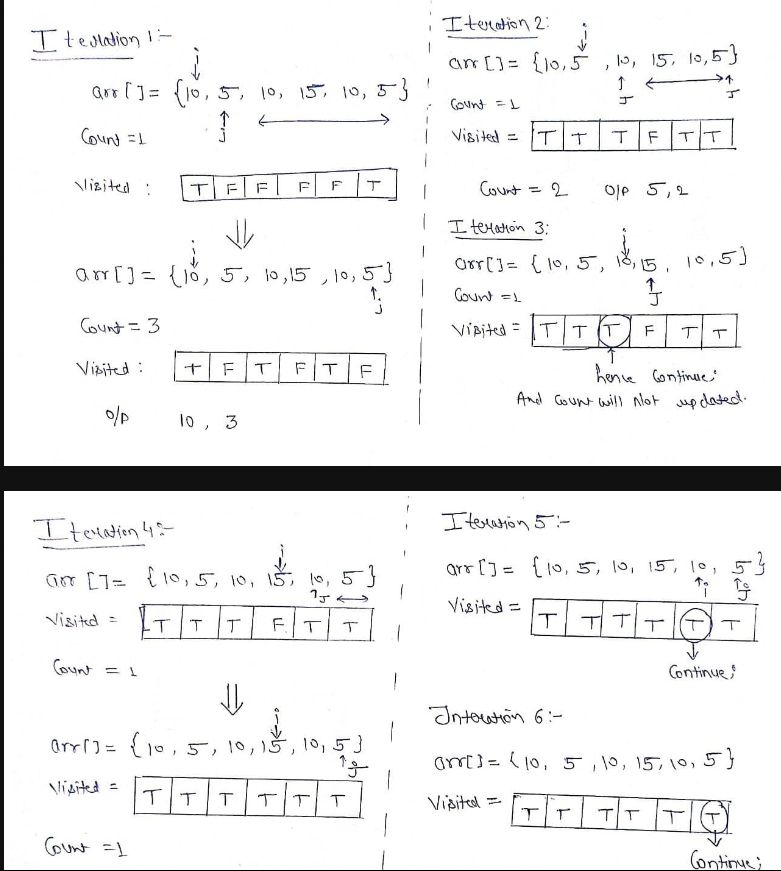 Iteration 1:-
i
arr[]= {10, 5, 10, 15, 10, 5}
j
Count =1
Visited : T F F F F T
i
arr[]= {10, 5, 10,15 ,10, 5}
j
Count = 3
Visited : T F T F T F
O/P 10 , 3
Iteration 2:
i
arr[]= {10,5 , 10, 15, 10,5}
J J
Count =1
Visited = T T T F T T
Count = 2 O/P 5,2
Iteration 3:
i
arr[]= {10, 5, 10, 15, 10,5}
J
Count =1
Visited = T T T F T T
hence Continue;
And Count will Not updated.
Iteration 4:-
i
arr []= {10,5, 10, 15, 10, 5}
J
Visited = T T T F T T
Count = 1
i
arr[]= {10, 5, 10, 15, 10, 5}
J
Visited = T T T T T T
Count =1
Iteration 5:-
arr[]= {10, 5, 10, 15, 10, 5}
i J
Visited = T T T T T T
Continue;
Intoration 6:-
arr[]= {10, 5 ,10, 15, 10, 5}
Visited = T T T T T T
Continue;